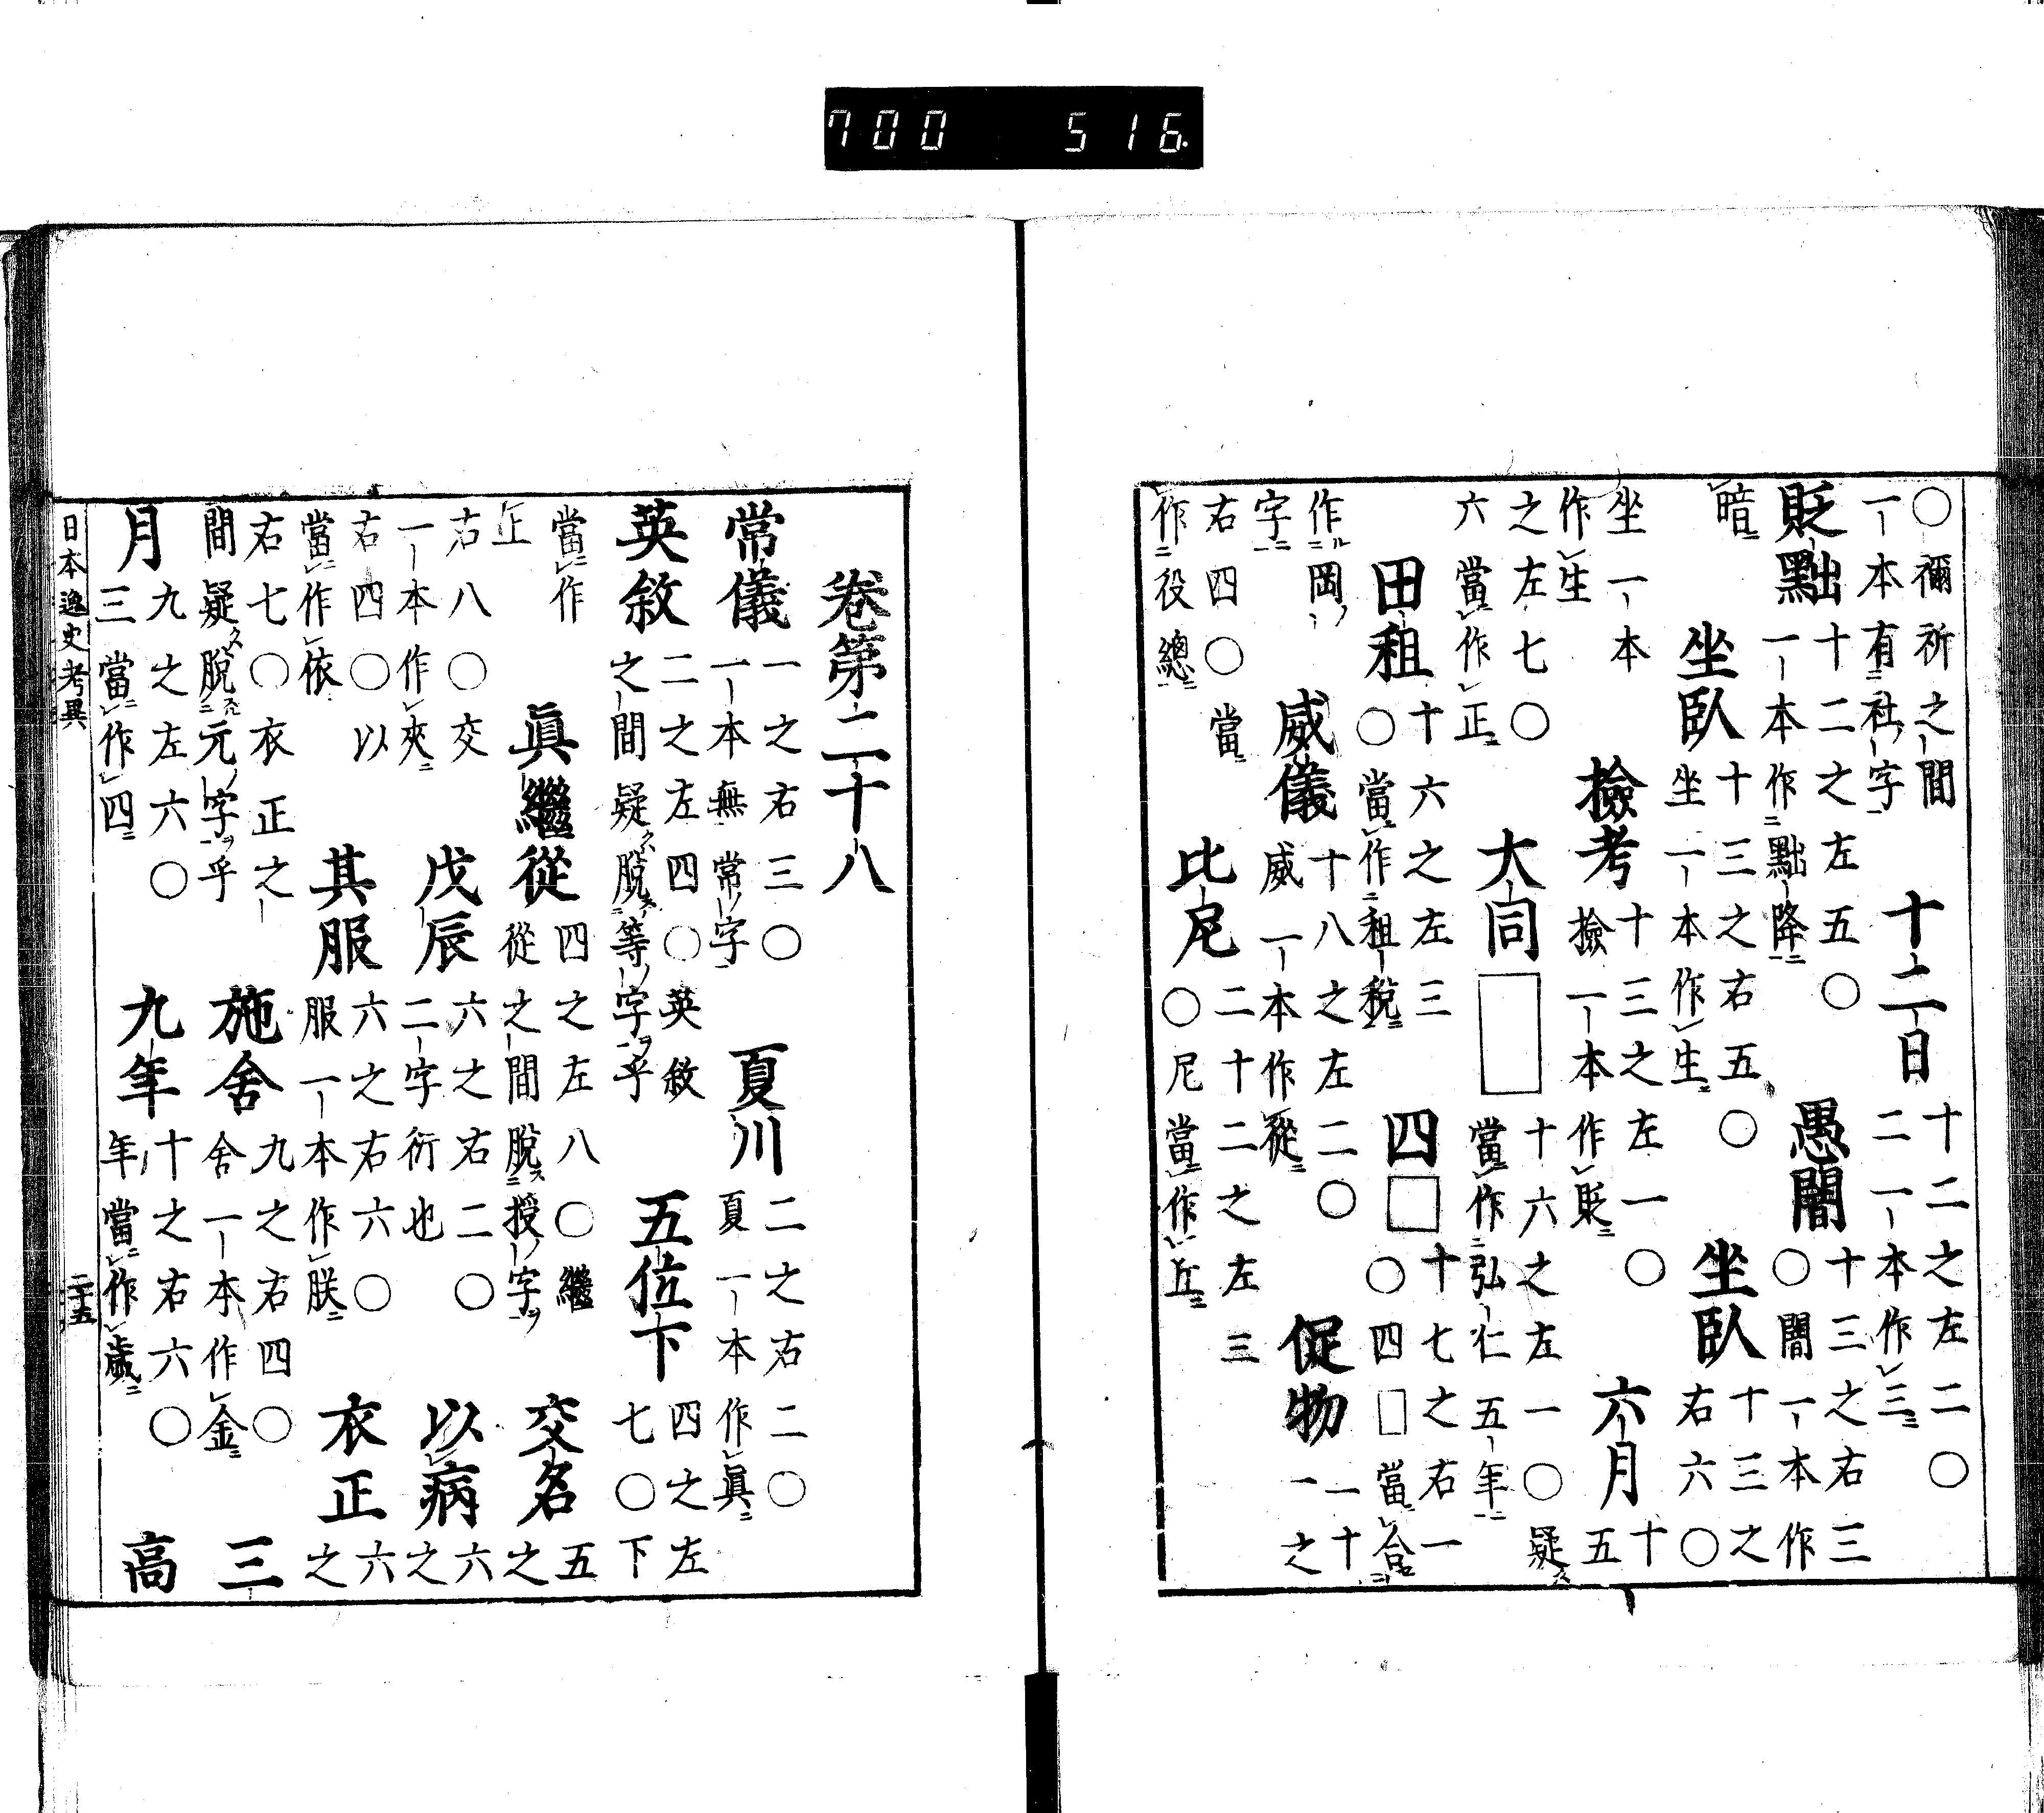 ○彌祈之間一本有社字 十二日 十二之左二○二一本作三
貶黜 十二之左五○一本作黜降 愚闇 十三之右三○闇一本作
暗 坐臥 十三之右五○坐一本作生 坐臥 十三之右六○
坐一本作生 撿考 十三之左一○撿一本作貶 六月 十五
之左七○六當作正 大同□ 十六之左一○疑當作弘仁五年
田租 十六之左三○當作租税 四□ 十七之右一○四□當合
作岡字 威儀 十八之左二○威一本作從 促物 二十一之
右四○當作役總 比尼 二十二之左三○尼當作丘
卷第二十八
常儀 一之右三○一本無常字 夏川 二之右二○夏一本作眞
英敘 二之左四○英敘之間疑脱等字乎 五位下 四之左七○下
當作正 眞繼從 四之左八○繼從之間脱授字 交名 五之
右八○交一本作夾 戊辰 六之右二○二字衍也 以病 六之
右四○以當作依 其服 六之右六○服一本作朕 衣正 六之
右七○衣正之間疑脱元字乎 施舍 九之右四○舍一本作金 三
月 九之左六○三當作四 九年 十之右六○年當作歳 高
日本逸史考異 二十五
700 516